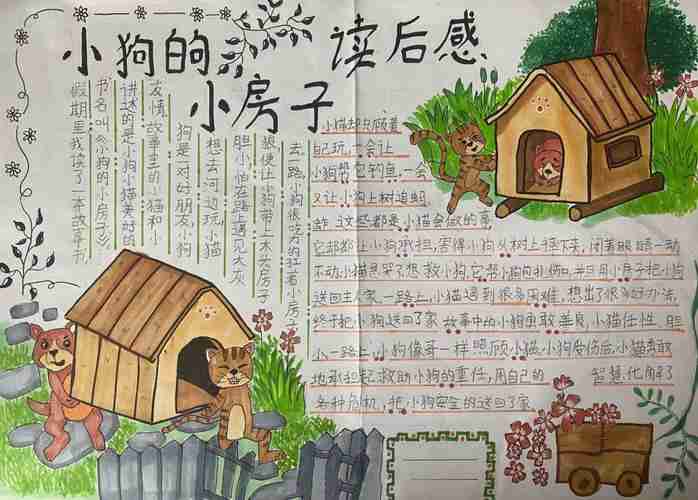 小狗的
小房子
读后感
假期里我读了一本故事书
书名叫《小狗的小房子》
讲述的是小狗小猫美好的
友情,故事里的小猫和小
狗是一对好朋友,小狗
想去河边玩,小猫
胆小,怕在路上遇见大灰
狼便让小狗带上木头房子
去一路,小狗很吃力的拉着小房子
小猫却只顾着
自己玩,一会让
小狗帮它钓鱼,一会
又让小狗上树追蚂
蚱,这些都是小猫会做的事,
它却都让小狗承担,害得小狗从树上摔下来,闭着眼睛一动
不动,小猫急哭了,想救小狗,它帮小狗包扎伤口,并且用小房子把小狗
送回主人家,一路上,小猫遇到很多困难,想出了很多好办法,
终于把小狗送回了家,故事中的小狗勇敢善良,小猫任性、胆
小一路上,小狗像哥一样照顾小猫,小狗受伤后,小猫勇敢
地承担起救助小狗的重任,用自己的 智慧化解了
各种危机,把小狗安全的送回了家